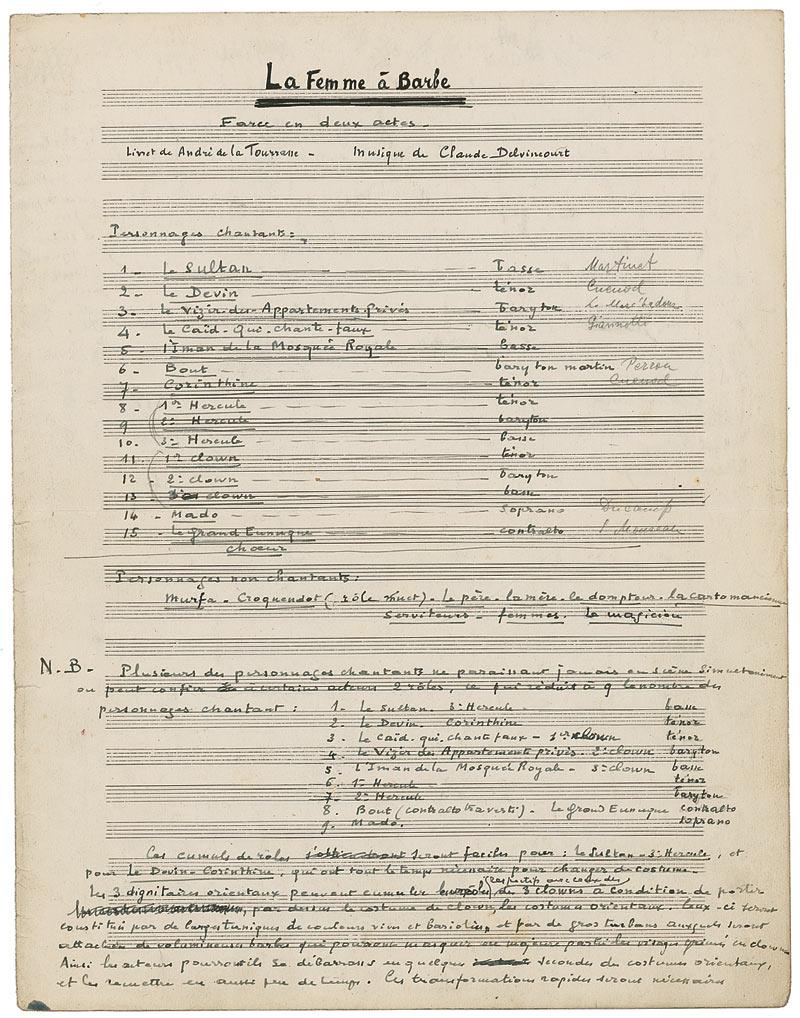 La Femme à Barbe
Farce en deux actes -
Livret de André de la Tourrasse - Musique de Claude Delvincourt
Personnages chantants :
1 - Le Sultan basse Martinet
2 - Le Devin ténor Cuenod
3 - Le Vizir-des-Appartements-Privés baryton
4. Le Caïd-Qui-chante-faux ténor Giannotti
5 - l'Iman de la Mosquée Royale basse
6 - Bout baryton martin Perron
7 - Corinthine ténor Cuenod
8 - 1er Hercule ténor
9 2e Hercule baryton
10. 3e Hercule basse
11 - 1er clown ténor
12 - 2e clown baryton
13 3e clown basse
14 - Mado soprano
15 - Le grand Eunuque contralto
choeur
Personnages non chantants :
Murfa - Croquendot (rôle muet) - Le père - la mère - le dompteur - la cartomancienne
Serviteurs - femmes. Le magicien
N.B - Plusieurs des personnages chantants ne paraissant jamais en scène simultanément
on peut confier à certains acteurs 2 rôles, ce qui réduit à 9 le nombre des
personnages chantant : 1 - Le Sultan. 3e Hercule - basse
2. Le Devin. Corinthine ténor
3. Le Caïd-qui-chante faux - 1er clown ténor
4. Le Vizir des Appartements privés. 2e clown baryton
5. L'Iman de la Mosquée Royale - 3e clown basse
6 - 1er Hercule ténor
7 - 2e Hercule baryton
8. Bout (contralto travesti) - Le grand Eunuque contralto
9. Mado. soprano
Ces cumuls de rôles seront faciles pour : le Sultan - 3e Hercule, et
pour Le Devin - Corinthine, qui ont tout le temps nécessaire pour changer de costume.
(respectifs avec ceux des
Les 3 dignitaires orientaux peuvent cumuler des 3 clowns à condition de porter
par dessus le costume de clown, le costumes orientaux. Ceux-ci seront
constitués par de larges tuniques de couleurs vives et bariolées et par de gros turbans auxquels seront
attachées de volumineuses barbes qui pourront masquer en majeure partie les visages grimés en clowns
Ainsi les acteurs pourront-ils se débarrasser en quelques secondes des costumes orientaux,
et les remettre en aussi peu de temps. Ces transformations rapides seront nécessaires